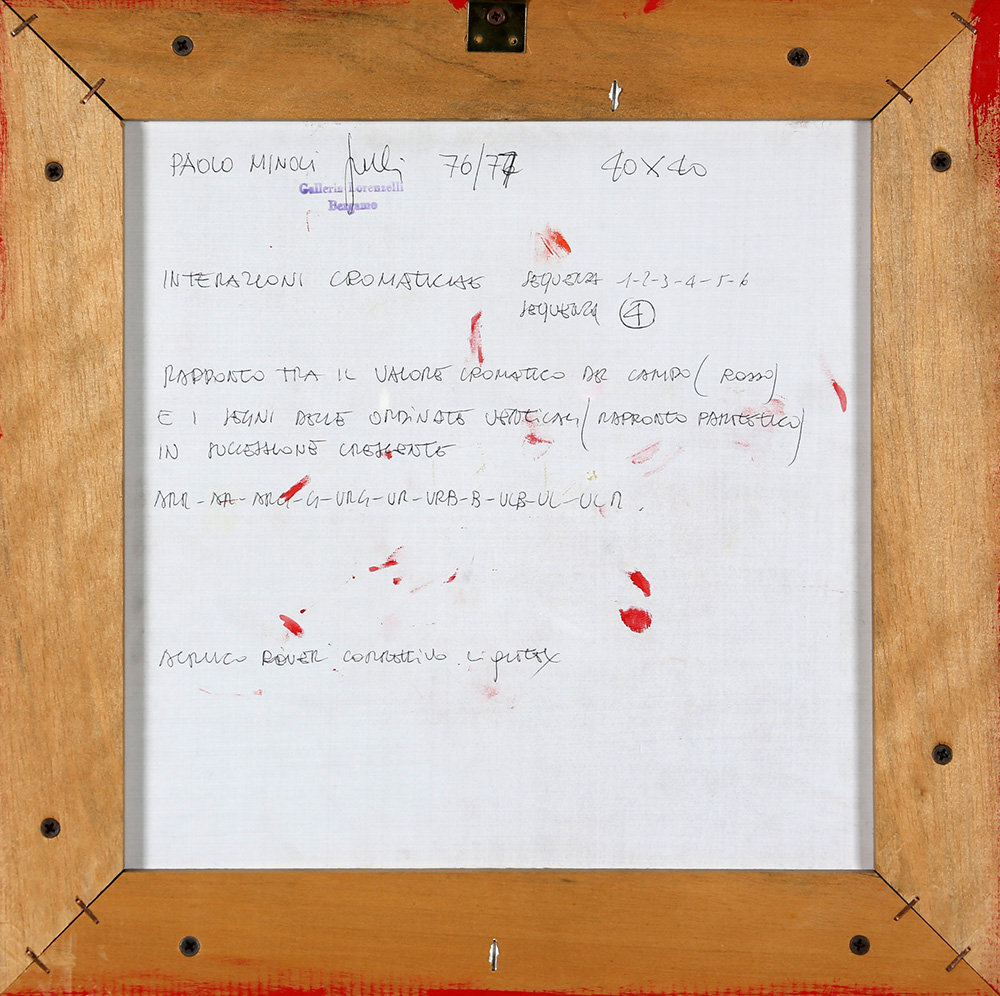 PAOLO MINOLI 76/77 40X40
Galleria Lorenzelli
Bergamo
INTERAZIONI CROMATICHE SEQUENZA 1-2-3-4-5-6
SEQUENZA 4
RAPPORTO TRA IL VALORE CROMATICO DEL CAMPO (ROSSO)
E I SEGNI DELLE ORDINATE VERTICALI (RAPPORTO PARTETICO)
IN SUCCESSIONE CRESCENTE
ARR-AR-ARG-G-VRG-VR-VRB-B-VLB-VL-VLR.
ACRILICO CORRETTIVO Liquitex